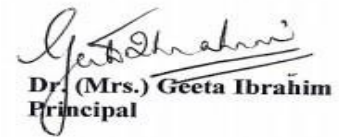 Geeta Ibrahim
Dr. (Mrs.) Geeta Ibrahim
Principal